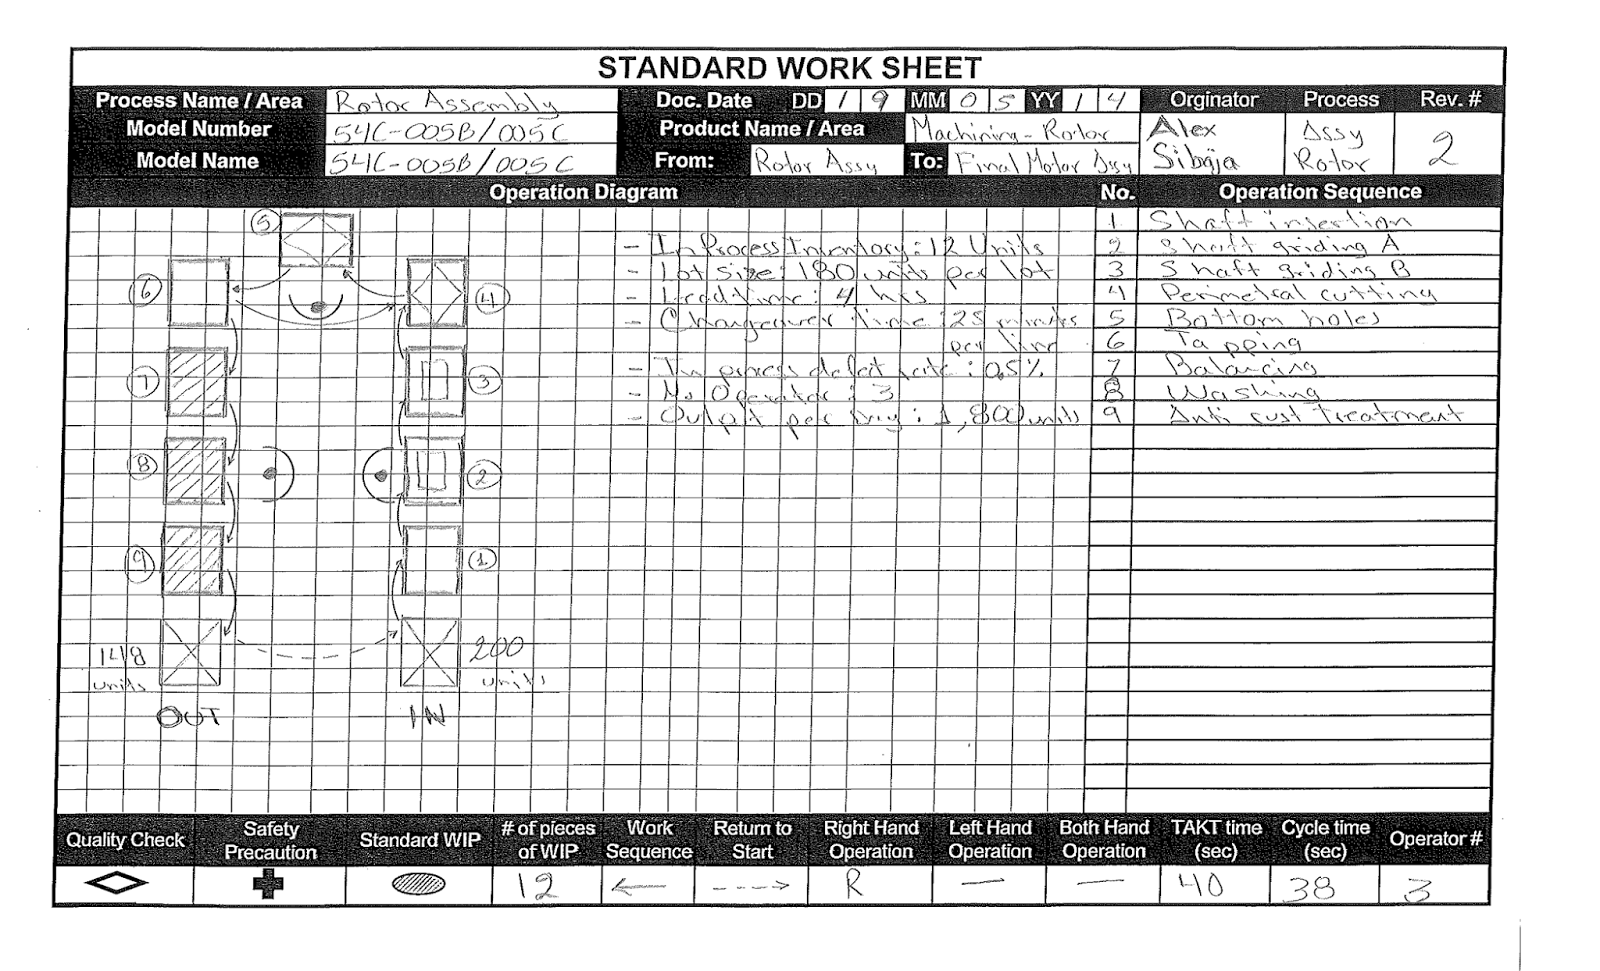 STANDARD WORK SHEET
Process Name / Area Rotor Assembly Doc. Date DD 1 9 MM 0 5 YY 1 4 Orginator Process Rev. #
Model Number 54C-005B/005C Product Name / Area Machining - Rotor Alex Assy 2
Model Name 54C-005B/005C From: Rotor Assy To: Final Motor Assy Sibaja Rotor
Operation Diagram No. Operation Sequence
5 1 Shaft insertion
- In Process Inventory: 12 Units 2 Shaft griding A
- Lot Size: 180 units per lot 3 Shaft griding B
6 4 - Lead time: 4 hrs 4 Perimetral cutting
- Changeover time: 25 minutes 5 Bottom holes
per line 6 Tapping
7 3 - In process defect rate: 0.5% 7 Balancing
- No Operator: 3 8 Washing
- Output per Day: 1,800 units 9 Anti rust treatment
8 2
9 1
148 200
units units
OUT IN
Quality Check Safety Precaution Standard WIP # of pieces of WIP Work Sequence Return to Start Right Hand Operation Left Hand Operation Both Hand Operation TAKT time (sec) Cycle time (sec) Operator #
12 R — — 40 38 3